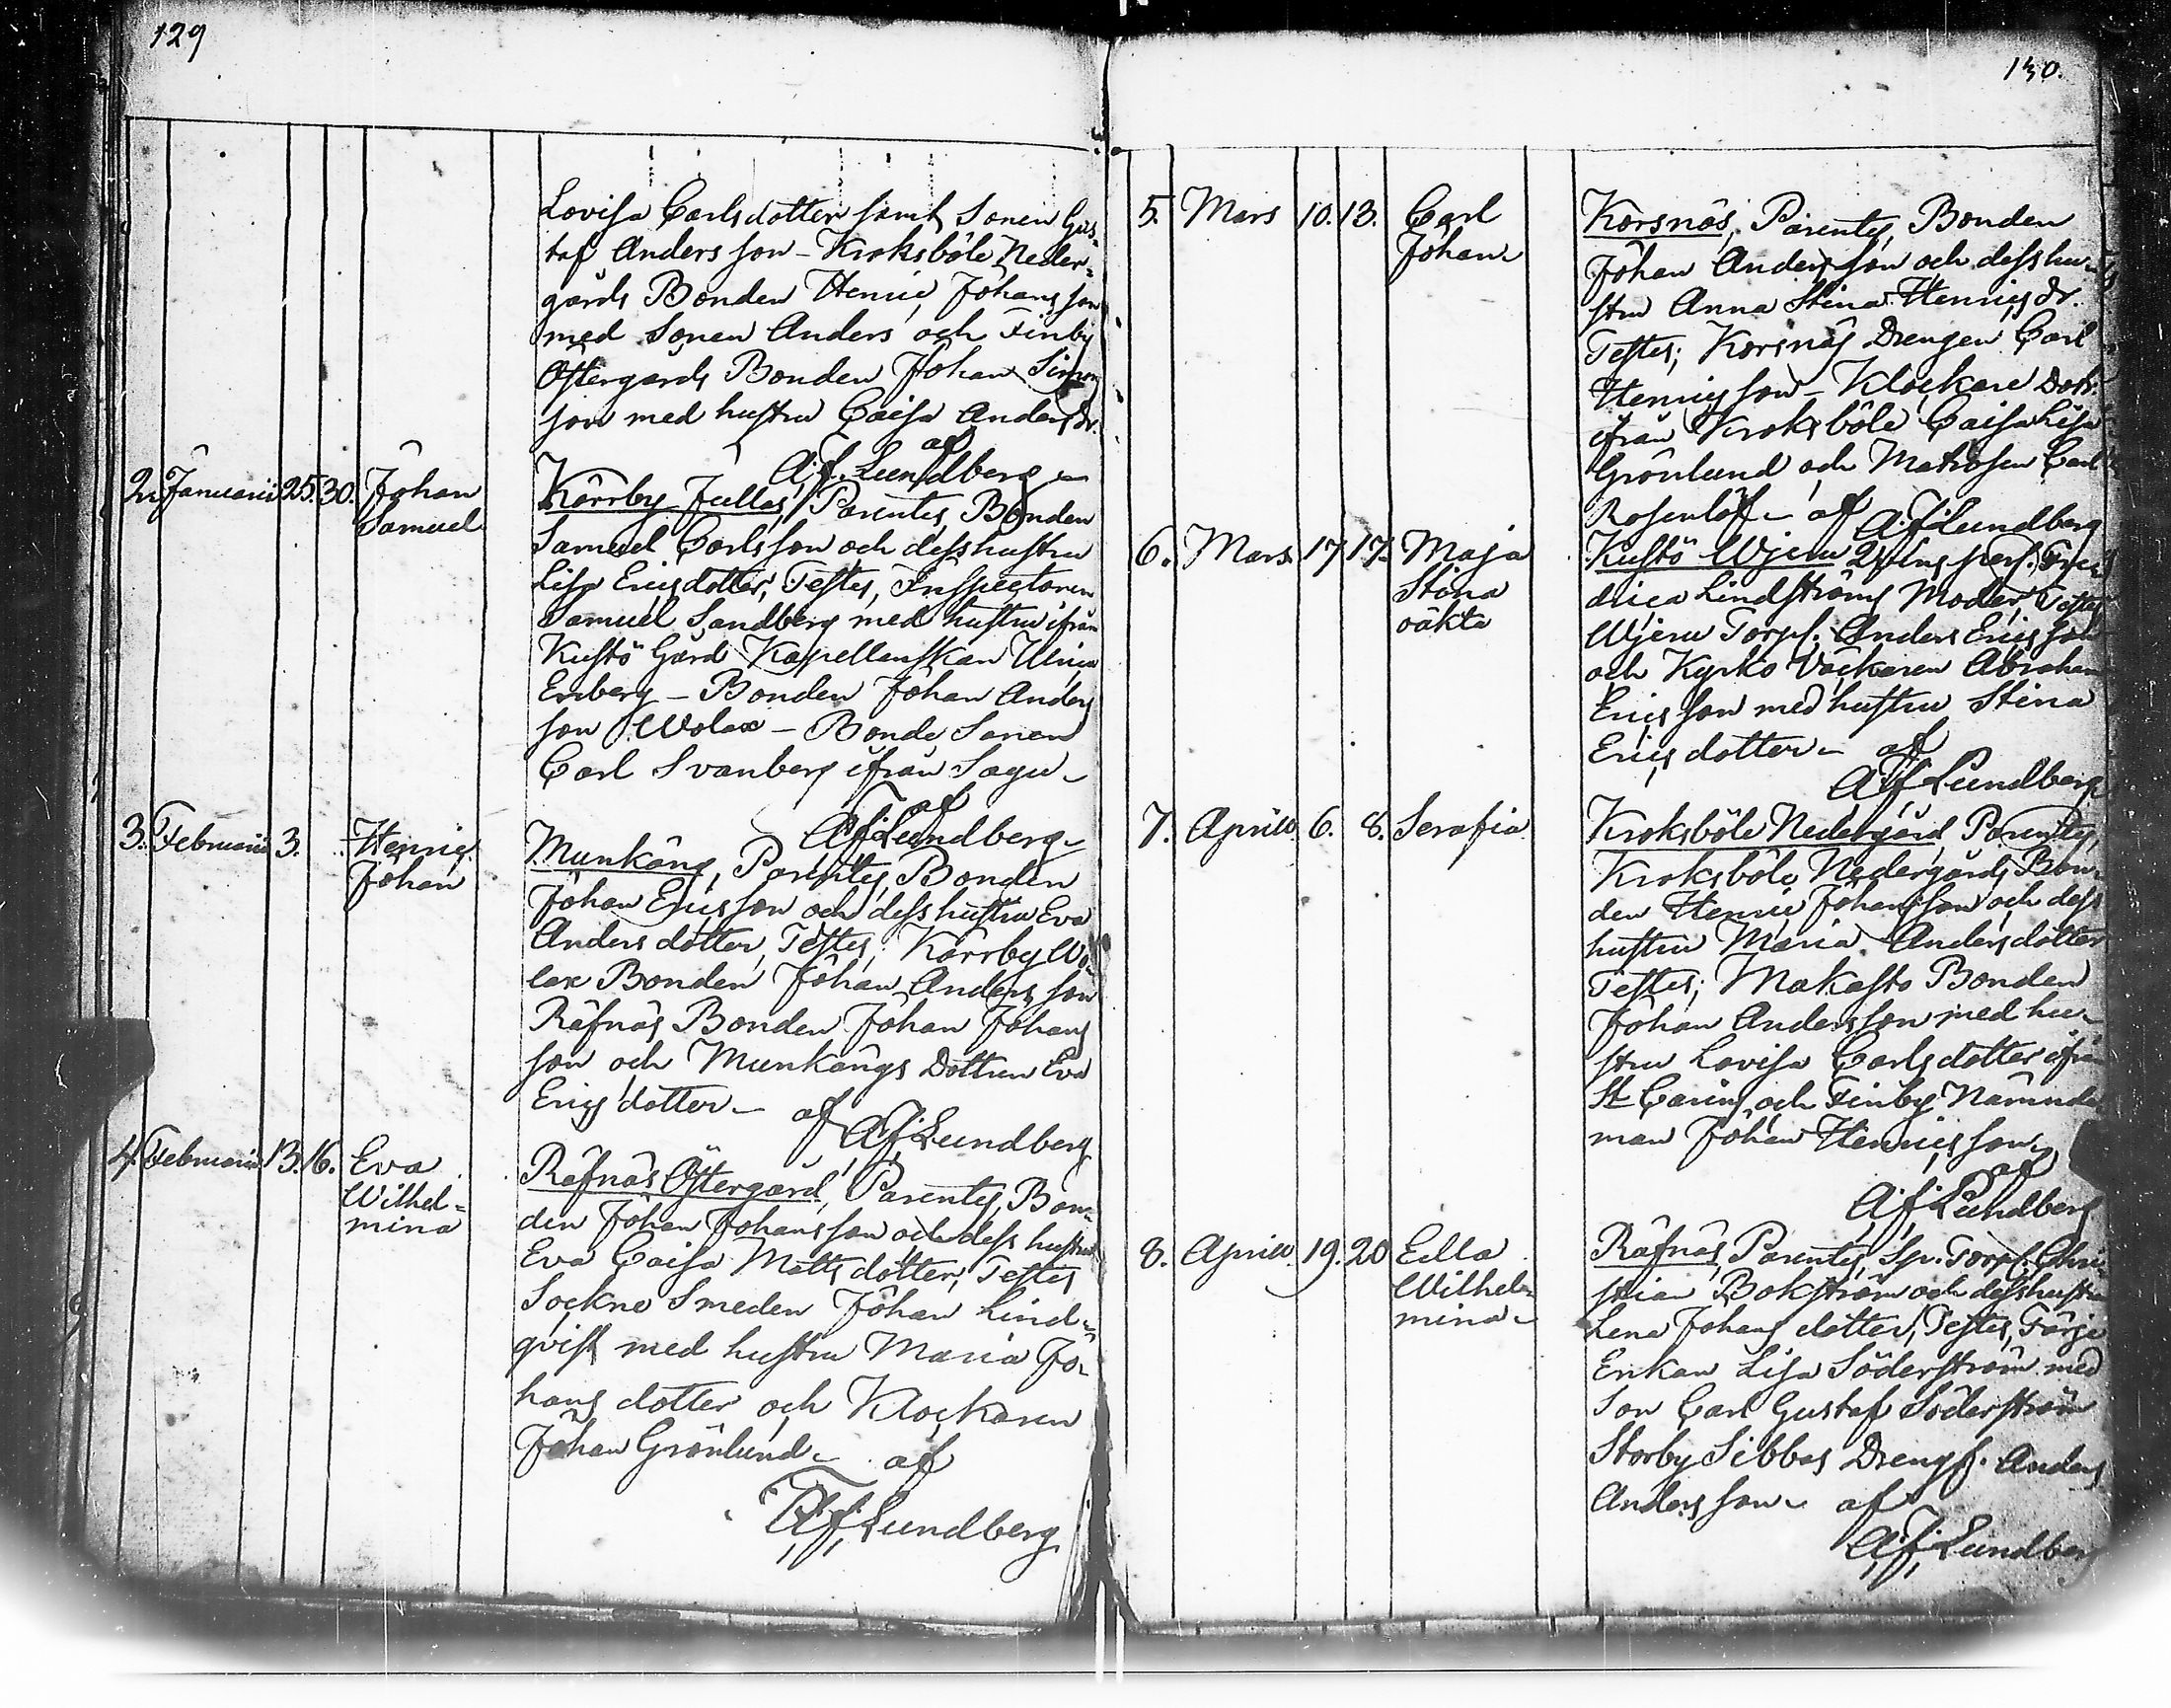 129
Lovisa Carlsdotter samt Sonen Gus-
taf Andersson - Kroksböle Neder-
gårds Bonden Henric Johansson
med Sonen Anders och Finby
Östergårds Bonden Johan Simon
son med hustru Caisa Andersdr.
af
A.f. Lundberg
2. Januarii 25. 30. Johan Samuel
Kårrby Jullas, Parentes, Bonden
Samuel Carlsson och dess hustru
Lisa Ericsdotter, Testes, Inspectoren
Samuel Sandberg med hustru ifrån
Kustö Gård Kapellanskan Ulrica
Enberg - Bonden Johan Anders
son Wolax - Bonde Sonen
Carl Svanberg ifrån Sagu
af
A.f. Lundberg
3. Februarii 3. Henric Johan
Munkäng, Parentes, Bonden
Johan Ericsson och dess hustru Eva
Andersdotter, Testes, Kårrby Wo-
lax Bonden Johan Andersson
Räfnäs Bonden Johan Johans
son och Munkängs Dottren Eva
Ericsdotter - af A.f. Lundberg
4. Februarii 13. 16. Eva Wilhel=
mina
Räfnäs Östergård, Parentes, Bon-
den Johan Johansson och dess hustru
Eva Caisa Mattsdotter, Testes
Sockne Smeden Johan Lind-
qvist med hustru Maria Jo-
hansdotter och Klockaren
Johan Grönlund - af
A.f. Lundberg
130.
5. Mars 10. 13. Carl Johan
Korsnäs, Parentes, Bonden
Johan Andersson och dess hu-
stru Anna Stina Henricsdr.
Testes; Korsnäs Drengen Carl
Henricsson - Klockare Dotr.
ifrån Kroksböle Caisa Lisa
Grönlund och Matrosen Carl
Rosenlöf - af A.f. Lundberg
6. Mars 17. 17. Maja
Stina
oäkta
Kustö Wjeru Fred
drica Lindströms Moder, Testes
Wjeru Torp. Anders Ericsson
och Kyrko Väckaren Abraham
Ericsson med hustru Stina
Ericsdotter - af
A.f. Lundberg
7. Aprill 6. 8. Serafia
Kroksböle Nedergård, Parentes,
Kroksböle Nedergårds Bon-
den Henric Johansson och dess
hustru Maria Andersdotter
Testes; Makasto Bonden
Johan Andersson med hu-
stru Lovisa Carlsdotter ifrån
St Carins och Finby Nämnde
man Johan Henricsson
af
A.f. Lundberg
8. Aprill 19. 20 Edla
Wilhel-
mina
Räfnäs, Parentes, Sp. Torp. Chri-
stian Bokström och dess hustru
Lena Johansdotter, Testes, Färje
Enkan Lisa Söderström med
Son Carl Gustaf Söderström
Storby Sibbas Drengs. Anders
Andersson - af
A.f. Lundberg